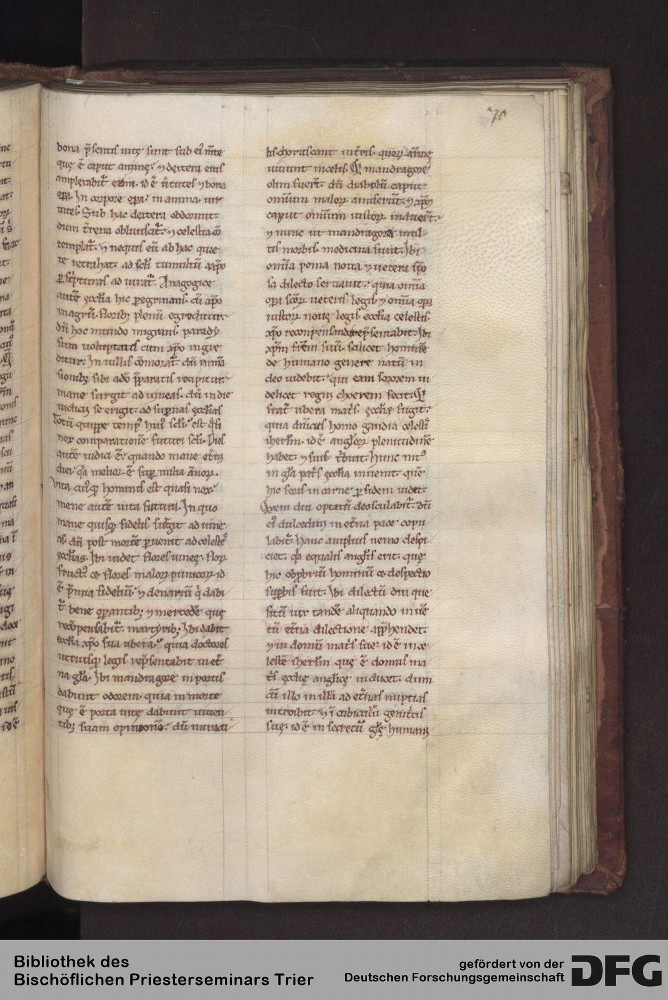 78
bona p̄sentis uitę sunt sub ei m̄te
quę ē caput animę. ⁊ dextera eius
amplexabit᷑ eam. id ē uirtutes ⁊ bona
In corpore in anima. uir
tutes. Sub hac dextera obdormit.
dum terrena obliuiscit᷑. ⁊ celestia cō
templat᷑. ⁊ nequis eū ab hac quie
te retrahat. ad scl̄i tumultū
p scripturas adiurat᷑. Anagogice
autē ęcclia hic peregrinans cū xp̄o
magnū floribꝫ plenū egreditur
dū hoc mundo migrans parady
sum uoluptatis cum xp̄o ingre
ditur. In uillis cōmorat᷑. dū
sionibꝫ sibi a dō p̄paratis recipitur.
mane surgit ad uineas. dū in die
iudicii se erigit. ad supernas ęcclias
Totū quippe temp̄ hui scl̄i est q̄si
nox comparatione futuri scl̄i. Dies
autē iudicii ē. quando mane
diei. q̄ melior ē sup milia annoꝝ.
Vita cuiꝰqꝫ hominis est quasi nox.
mane autē uita futura. In quo
mane quisqꝫ fidelis surgit ad uine
as. dū post mortē puenit ad celestes
ęcclias. Ibi uidet flores uineę. flor
fructꝰ. ⁊ flores maloꝝ punicoꝝ. id
ē p̄mia fidelium. ⁊ denariū q̄ dabi
t᷑ bene opantibꝫ. ⁊ mercedē quę
recōpensabit᷑ martyribꝫ. Ibi dabit
ęcclia xp̄o sua ubera. quia doctores
utriusqꝫ legis rep̄sentabit in et᷑
na glā. Ibi mandragorę in portis
dabunt odorem. quia in morte
quę ē porta uitę dabunt uiuen
tibꝫ suam opinionē. dū miracu
lis choruscant in terris. quoꝝ animę
uiuunt in celis. Mandragorę
olim fuert̄. dū diabolū caput
omnium maloꝝ amiserūt. ⁊ xp̄m
caput omnium iustoꝝ induert̄.
⁊ nunc ut mandragora mul
tis morbis medicina sunt. Ibi
omnia poma noua ⁊ uetera spō
sa dilecto seruauit. quia omnia
opa scōꝝ ueteris legis. ⁊ omnia opa
iustoꝝ nouę legis ęcclia celestis
xp̄o recompensanda rep̄sentabit. Ibi
xp̄m frēm suū. scilicet hominē
de humano genere natū in
deo uidebit. qui eam sororem
delicet regni coheredem fecit. Q̄
frat᷑ ubera matris ęcclię sugit.
quia dn̄icus homo gaudia celestis
iherlm̄. id ē angeloꝝ plenitudinē
habet. ⁊ suis tribuit. Hunc intꝰ
in glā patris ęcclia inuenit. quē
hic foris in carne p fidem uidet.
Quem diu optatū deosculabit᷑. dū
ei dulcedini in et᷑na pace copu
labit᷑. Hanc amplius nemo despi
ciet. q̄a equalis anglis erit. quę
hic obpbriū hominū ⁊ despectio
supbis fuit. Ibi dilectū diu que
situ uix tandē aliquando in uē
tū et᷑na dilectione app̄hendet.
⁊ in domū matris suę. id ē in ce
lestē iherlm̄ quę ē domus ma
tris ęcclię anglicę inducet. dum
cū illo in illā ad et᷑nas nuptias
introibit. ⁊ ī cubiculū genitricis
suę. id ē in secretū glię humanę
Bibliothek des
Bischöflichen Priesterseminars Trier
gefördert von der
Deutschen Forschungsgemeinschaft
DFG